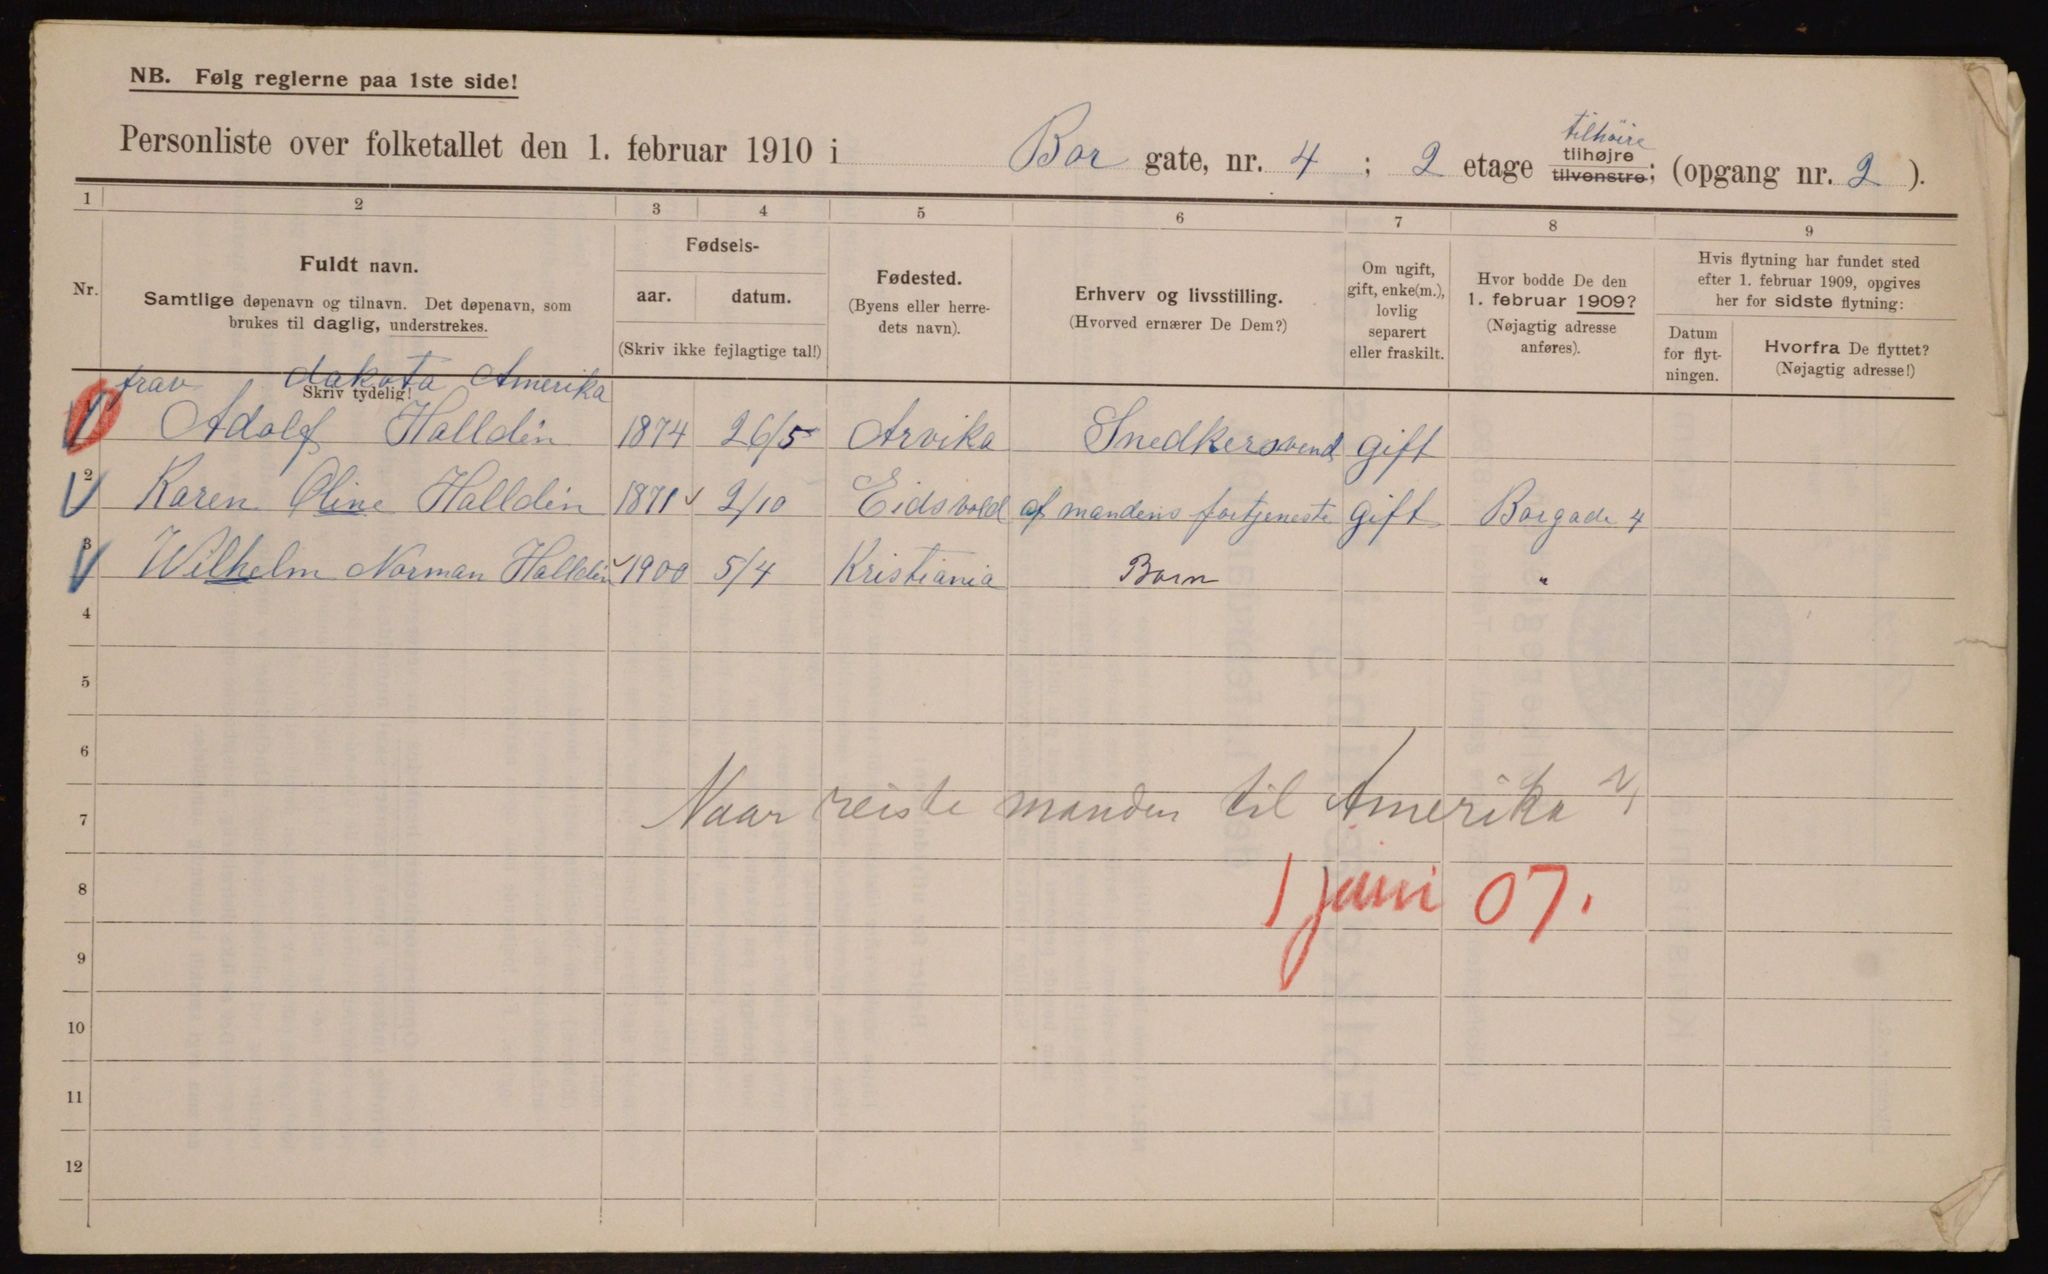 NB. Følg reglerne paa 1ste side!
tilhöire
Personliste over folketallet den 1. februar 1910 i Bor gate, nr. 4 ; 2 etage tilhøjre tilvenstre; (opgang nr. 2 ).
1 2 3 4 5 6 7 8 9
Nr.
Fuldt navn.
Samtlige døpenavn og tilnavn. Det døpenavn, som
brukes til daglig, understrekes.
Fødsels-
aar. datum.
(Skriv ikke fejlagtige tal!)
Fødested.
(Byens eller herre-
dets navn).
Erhverv og livsstilling.
(Hvorved ernærer De Dem?)
Om ugift,
gift, enke(m.),
lovlig
separert
eller fraskilt.
Hvor bodde De den
1. februar 1909?
(Nøjagtig adresse
anføres).
Hvis flytning har fundet sted
efter 1. februar 1909, opgives
her for sidste flytning:
Datum
for flyt-
ningen.
Hvorfra De flyttet?
(Nøjagtig adresse!)
frav dakota Amerika
Skriv tydelig!
1 Adolf Halldén 1874 26/5 Arvika Snedkersvend gift
2 Karen Oline Halldén 1871 2/10 Eidsvold af mandens fortjeneste gift Borgade 4
3 Wilhelm Norman Halldén 1900 5/4 Kristiania Barn "
4
5
6
7 Naar reiste manden til Amerika
8 1 juni 07.
9
10
11
12